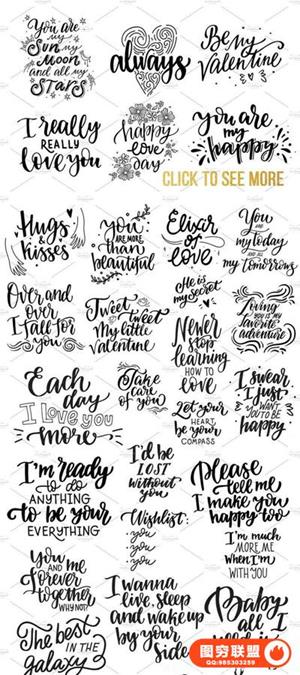 You are
my
Sun my
Moon
and all my
STARS
always
Be my
Valentine
I really
REALLY
love you
happy
love
day
You are
my
happy
CLICK TO SEE MORE
Hugs
&
kisses
You
ARE MORE
than
beautiful
Elixir
of
love
You
are
my today
AND ALL
my tomorrows
Over and
over
I fall for
you
Tweet
tweet
My little
valentine
He is
my secret
Never
stop
learning
HOW TO
LOVE
Loving
YOU IS MY
favorite
adventure
Each
day
I love you
more
Take
care
of you
Let your
HEART
BE YOUR
COMPASS
I swear
I just
WANT
YOU TO BE
happy
I'm ready
to do
ANYTHING
to be your
EVERYTHING
I'd be
LOST
without
you
Wishlist:
you
you
you
Please
tell me
I make you
happy too
I'M MUCH
MORE ME
WHEN I'M
WITH YOU
You
AND me
Forever
together
WHY NOT?
I wanna
live, sleep
and wake up
by your
side
Baby
all I
The best
IN THE
galaxy
图穷联盟
QQ:985303259